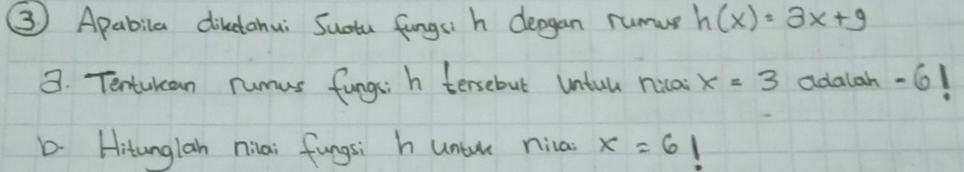 ③ Apabila diketahui Suatu fungsi h dengan rumus h(x) = 3x+9
a. Tentukan rumus fungsi h tersebut Untuk nilai x = 3 adalah -6!
b. Hitunglah nilai fungsi h untuk nilai x = 6!